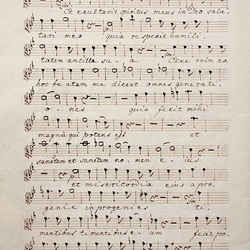 Et exultavit spiritus meus in Deo salu
tari meo quia respexit humili
tatem ancillæ suæ Ecce enim ex
hoc beatam me dicent omnes generati
ones quia fecit mihi
magna qui potens est et
sanctum et sanctum nomen eius
et misericordia eius a pro
genie in progenies ti
mentibus timentibus eum fecit po